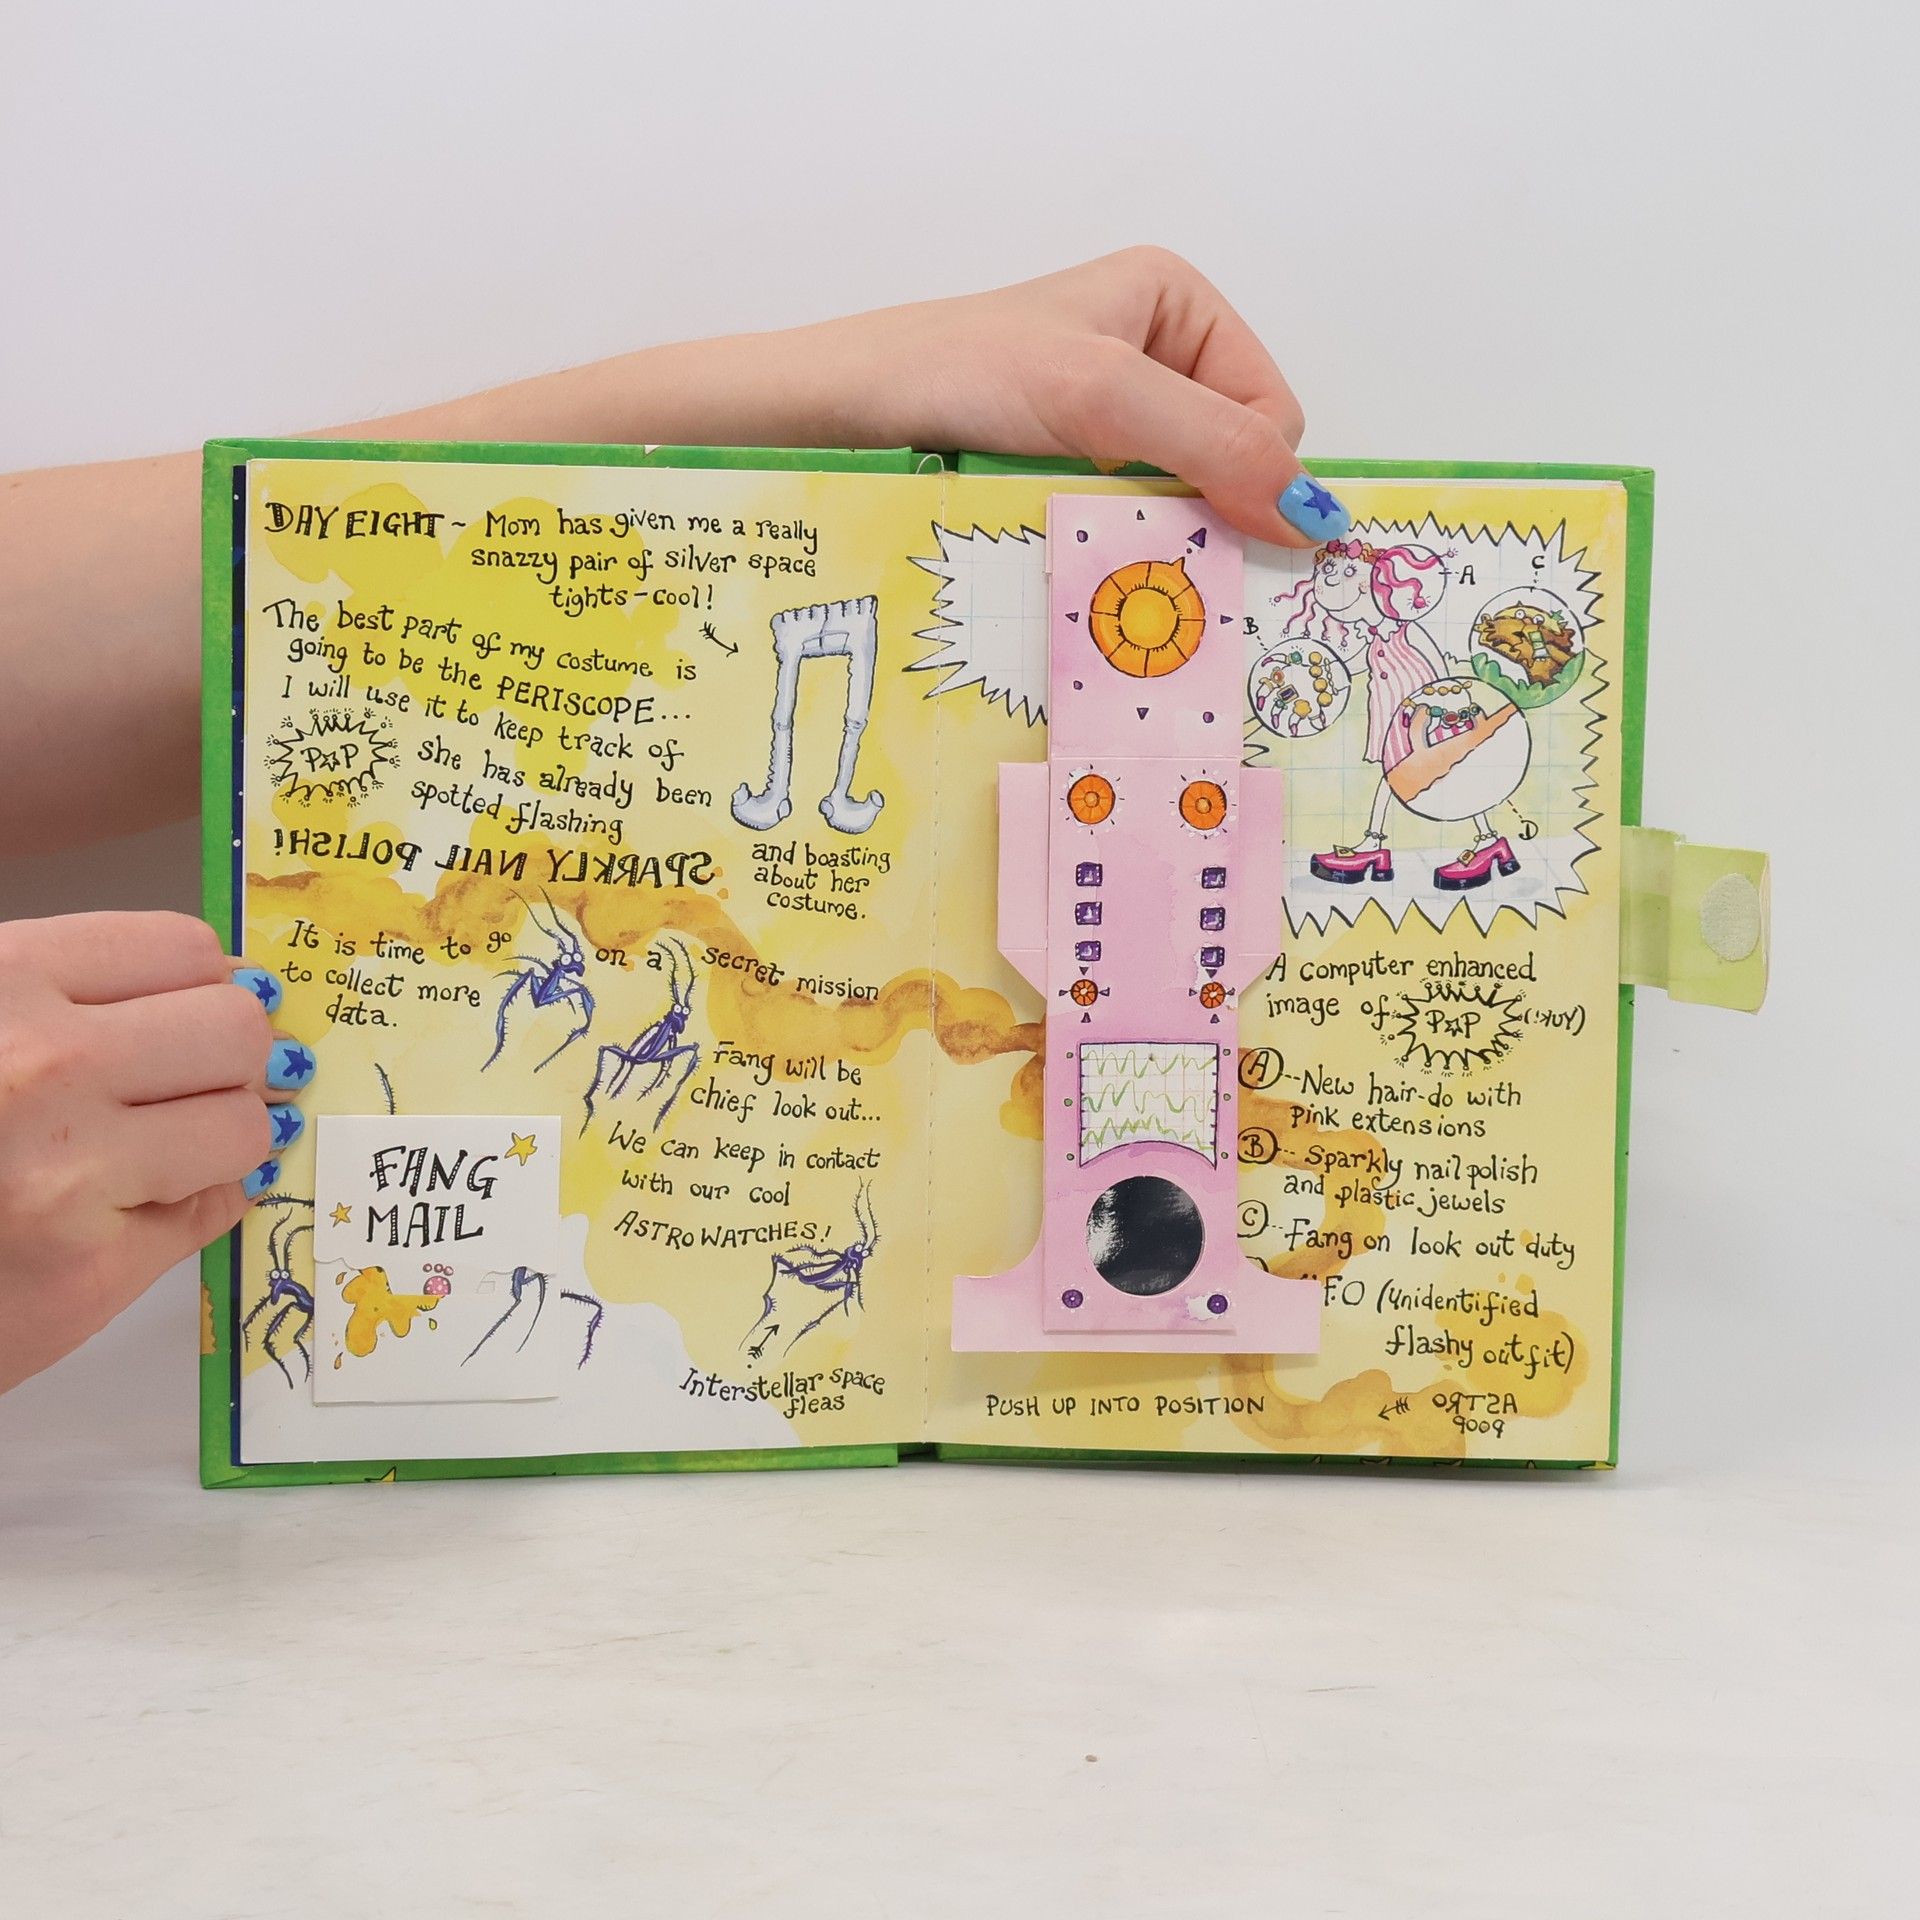 DAY EIGHT ~ Mom has given me a really
snazzy pair of silver space
tights - cool!
The best part of my costume is
going to be the PERISCOPE...
I will use it to keep track of
P☆P she has already been
spotted flashing
SPARKLY NAIL POLISH!
and boasting
about her
costume.
It is time to go on a secret mission
to collect more
data.
Fang will be
chief look out...
We can keep in contact
with our cool
ASTRO WATCHES!
FANG
MAIL
Interstellar space
fleas
A
B
C
D
A computer enhanced
image of P☆P (YUK!)
A -- New hair-do with
pink extensions
B -- Sparkly nail polish
and plastic jewels
C -- Fang on look out duty
F.O (unidentified
flashy outfit)
PUSH UP INTO POSITION
ASTRO
POOP